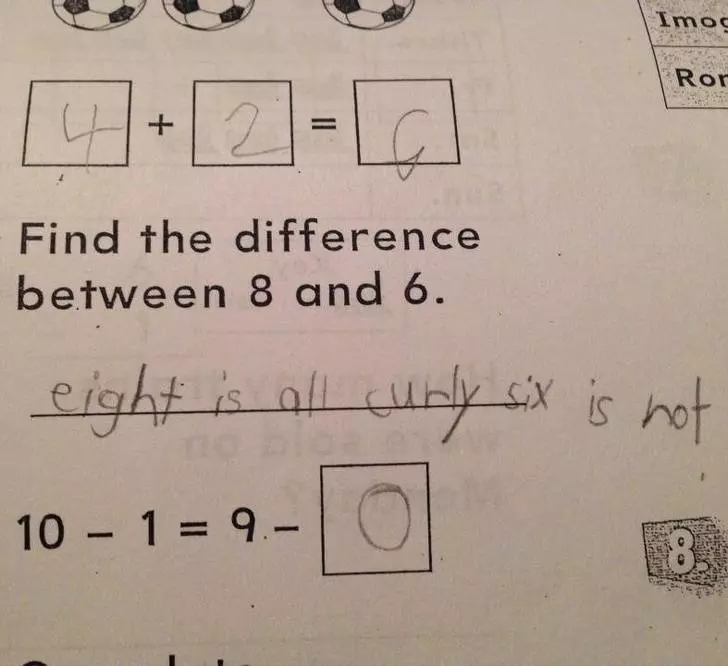 Imog
Ror
4 + 2 = 6
Find the difference
between 8 and 6.
eight is all curly six is not
10 – 1 = 9 – 0
8.